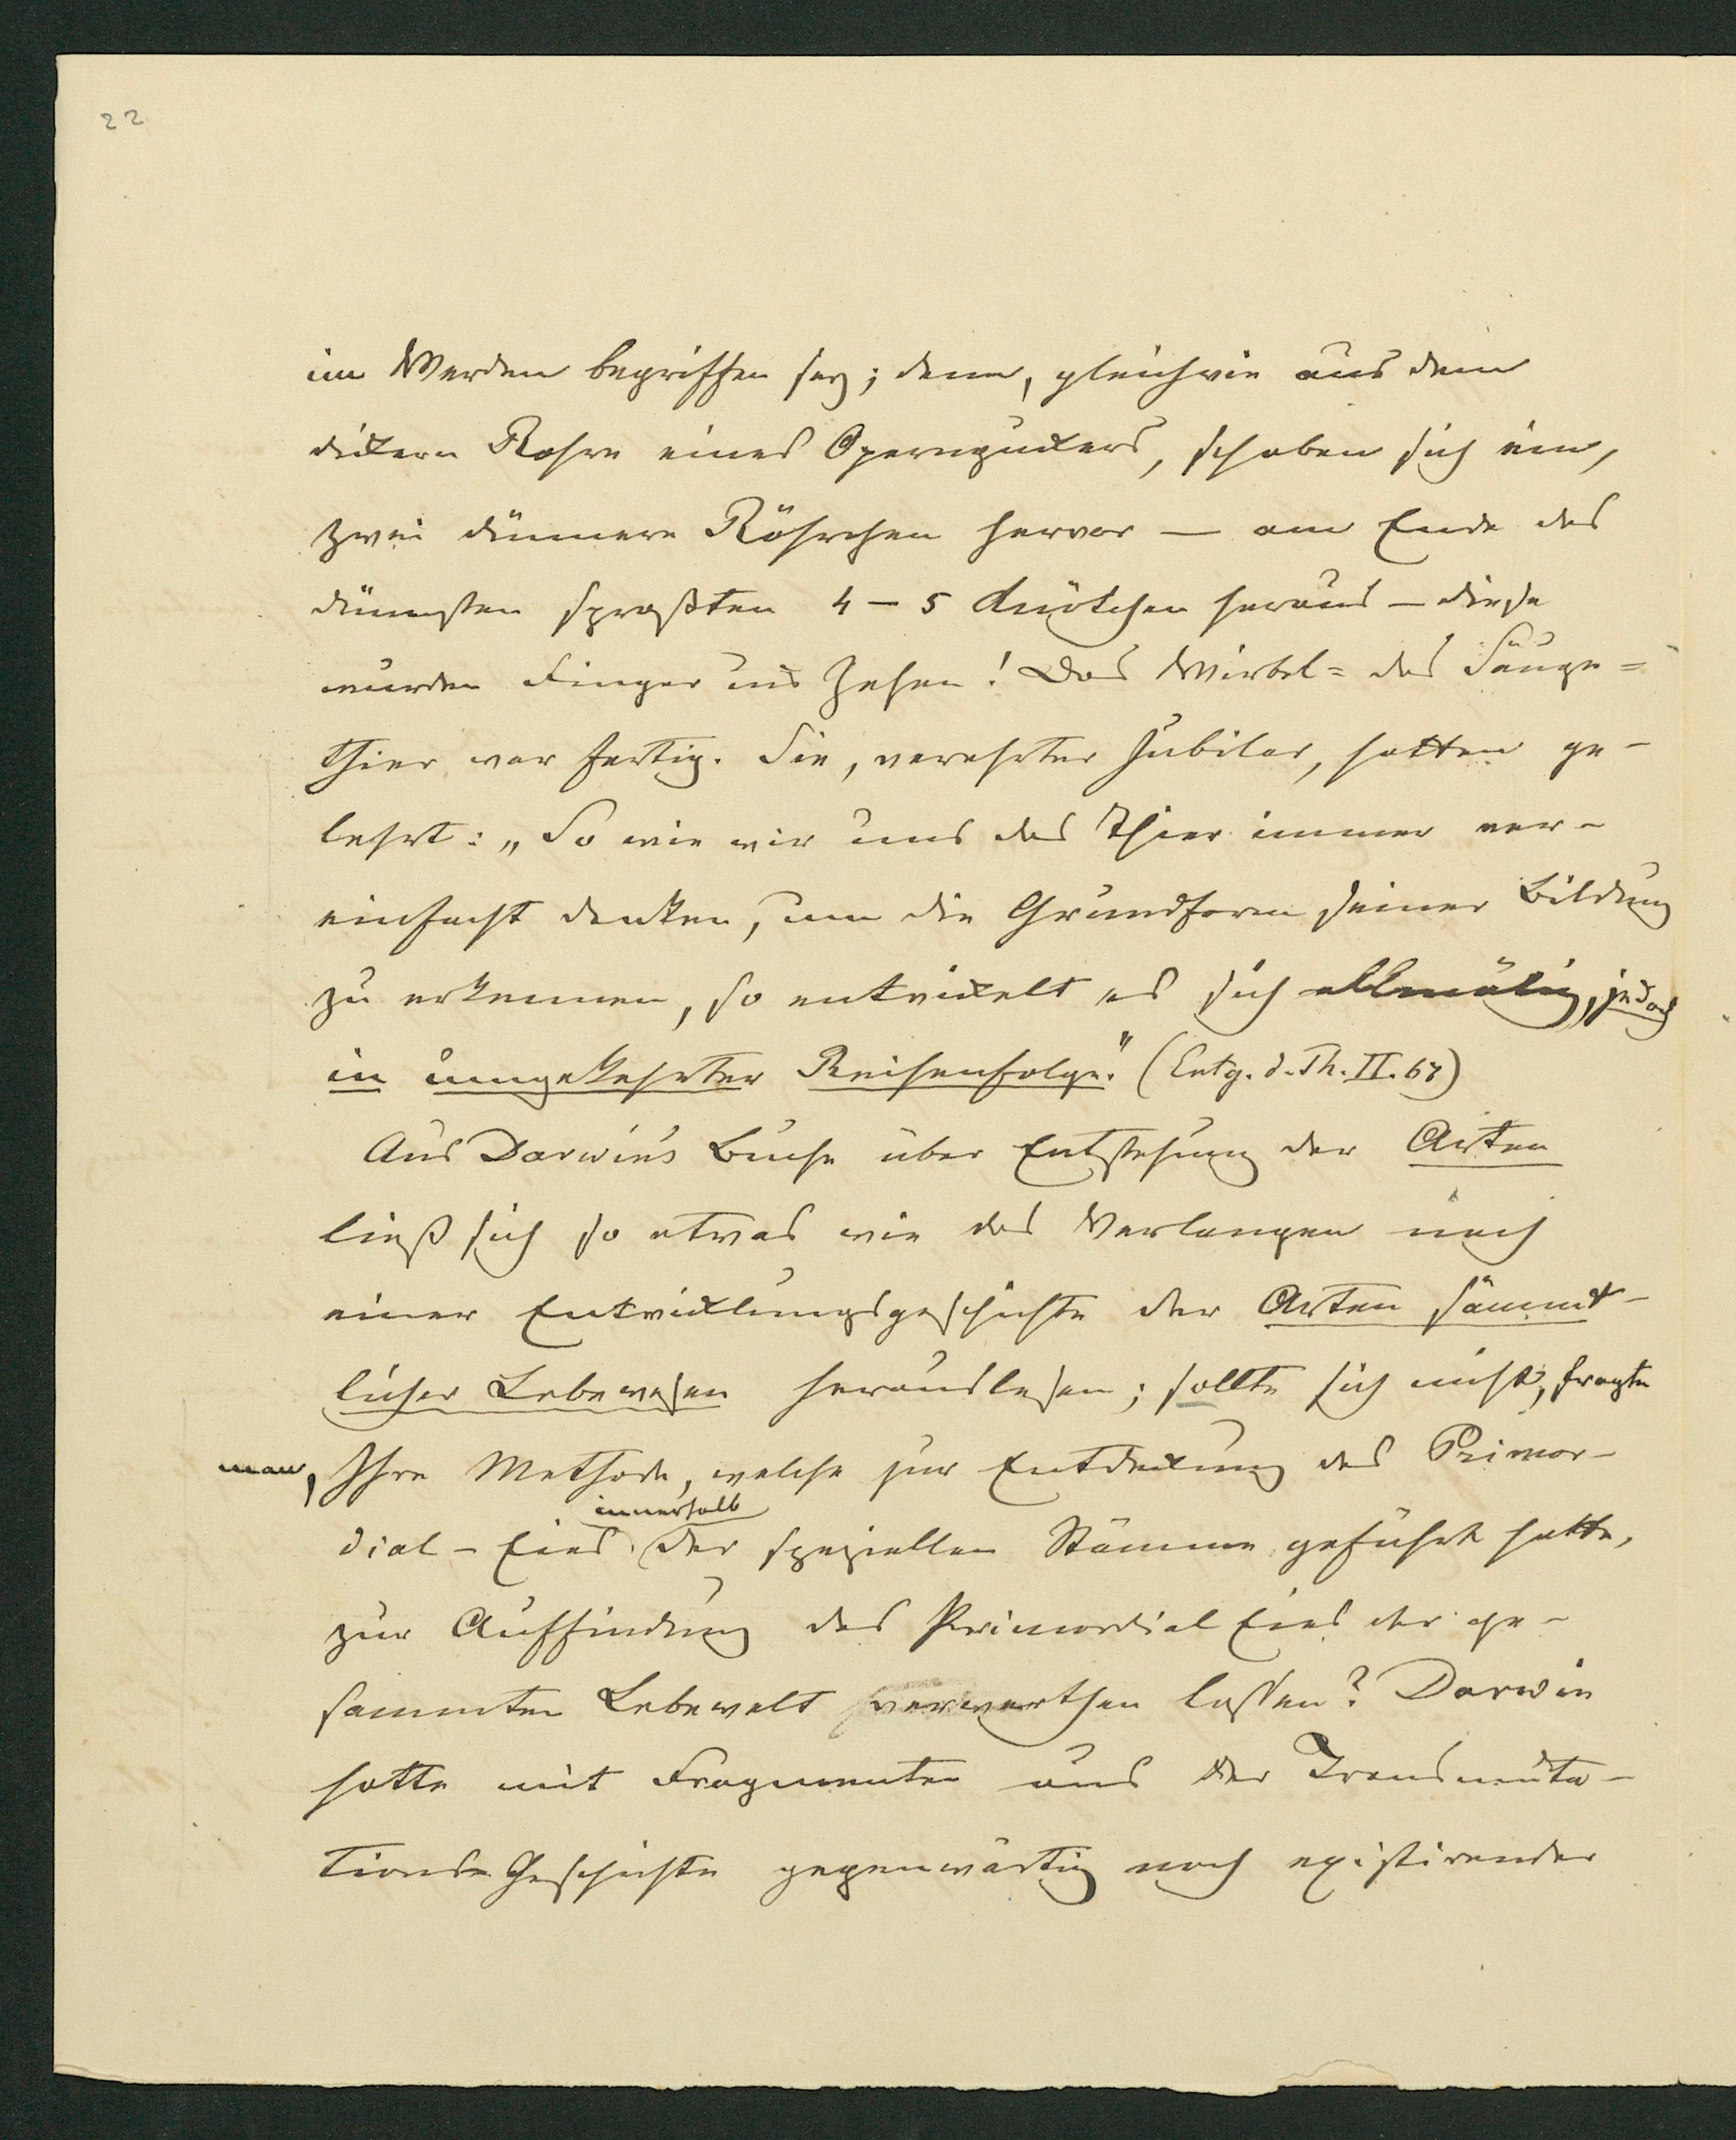 22
im Werden begriffen sey; denn, gleichwie aus dem
dickern Rohre eines Operngukers, schoben sich ein,
zwei dünnere Röhrchen hervor — am Ende des
dünnsten sproßten 4 – 5 Knötchen heraus — diese
wurden Finger und Zehen! Das Wirbel= das Säuge=
thier war fertig. Sie, verehrter Jubilar, hatten ge-
lehrt: „So wie wir uns das Thier immer ver-
einfacht denken, um die Grundform seiner Bildung
zu erkennen, so entwickelt es sich allmälig, jedoch
in umgekehrter Reihenfolge." (Entg. d. Th. II. 67)
Aus Darwin's Buche über Entstehung der Arten
ließ sich so etwas wie das Verlangen nach
einer Entwicklungsgeschichte der Arten sämmt-
licher Lebewesen herauslesen; sollte sich nicht, fragte
man, Ihre Methode, welche zur Entdeckung des Primor-
innerhalb
dial - Eies der speziellen Stämme geführt hatte,
zur Auffindung des Primordial Eies der ge-
sammten Lebewelt verwerthen lassen? Darwin
hatte mit Fragmenten aus der Transmuta-
tions-Geschichte gegenwärtig noch existirender